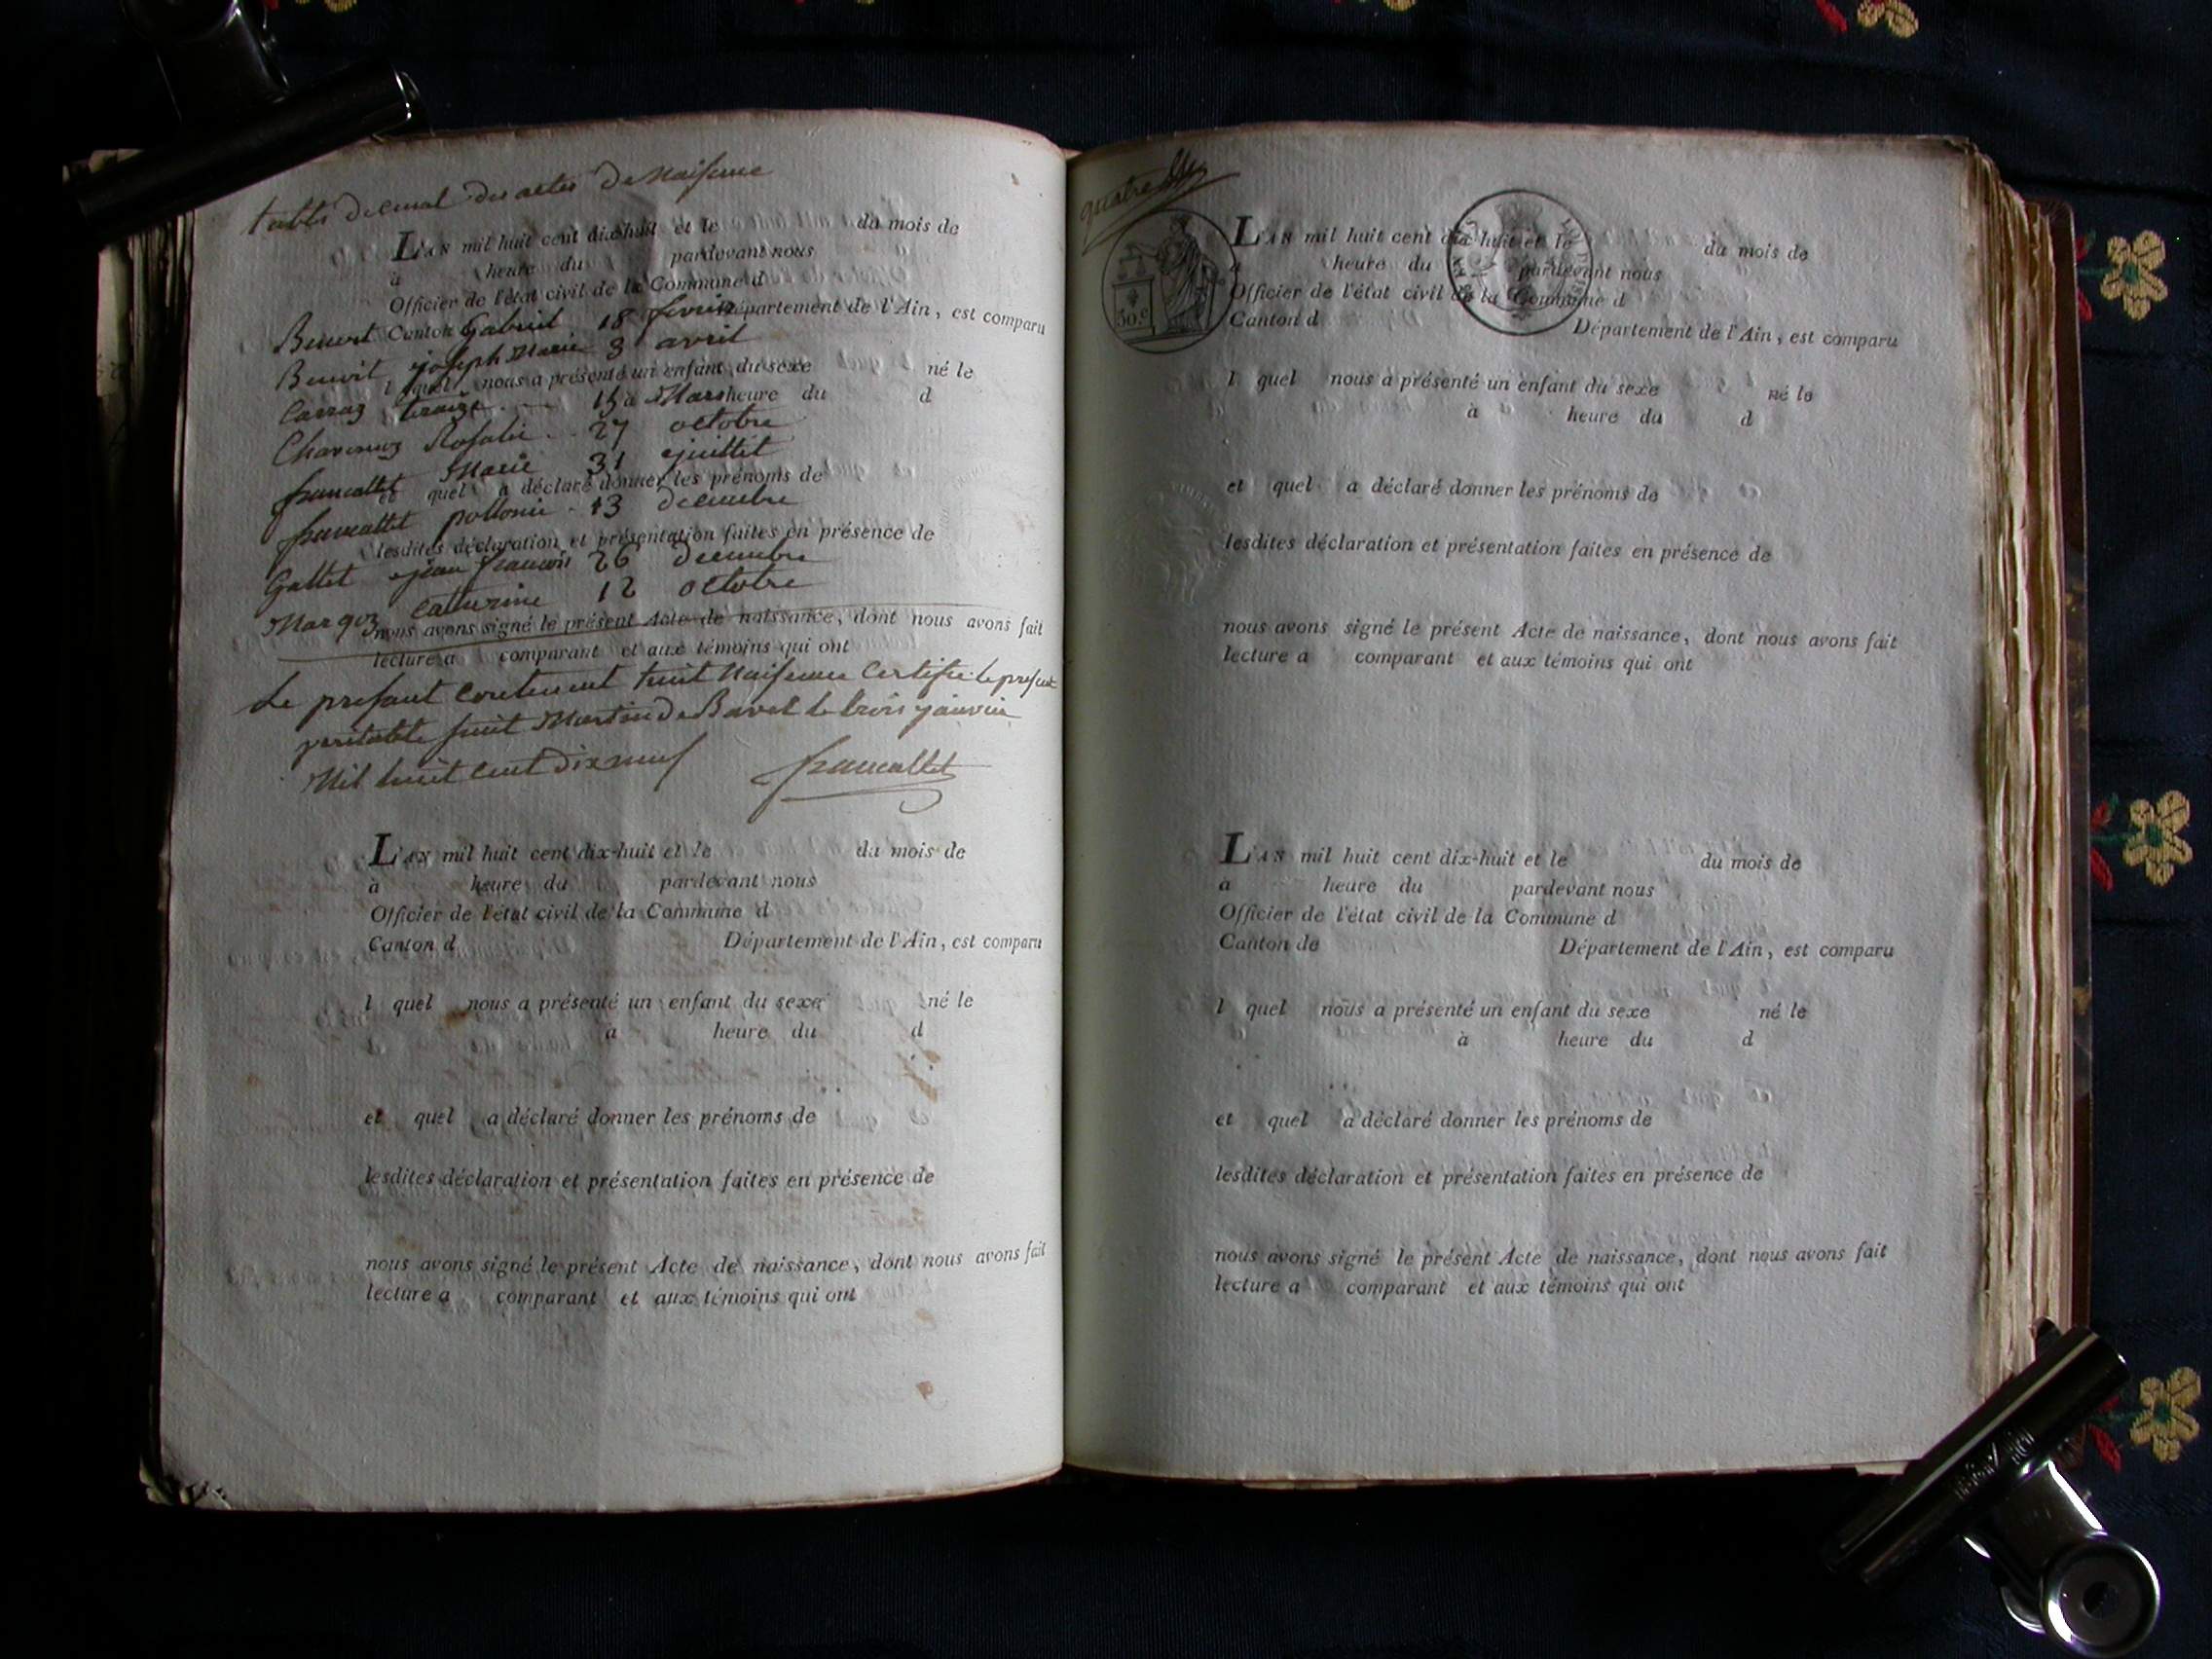 table decenal des actes de Naissance
L'AN mil huit cent dix-huit et le du mois de
à heure du pardevant nous
Officier de l'état civil de la Commune d
Canton Département de l'Ain, est comparu
Benoit Gabriel 18 fevrier
Benoit joseph Marie 3 avril
l quel nous a présenté un enfant du sexe né le
Carraz 15 Mars heure du d
Charvraz Rosalie 27 octobre
francallet Marie 31 juillet
et quel a déclaré donner les prénoms de
francallet pollonie 13 decembre
lesdites déclaration et présentation faites en présence de
Gallet jean francois 26 decembre
Margoz Catherine 12 octobre
nous avons signé le présent Acte de naissance, dont nous avons fait
lecture a comparant et aux témoins qui ont
Le present contenent huit Naissance Certifie le present
veritable suit Martin de Bavel le trois janvier
Mil huit cent dix neuf francallet
L'AN mil huit cent dix-huit et le du mois de
à heure du pardevant nous
Officier de l'état civil de la Commune d
Canton d Département de l'Ain, est comparu
l quel nous a présenté un enfant du sexe né le
a heure du d
et quel a déclaré donner les prénoms de
lesdites déclaration et présentation faites en présence de
nous avons signé le présent Acte de naissance, dont nous avons fait
lecture a comparant et aux témoins qui ont
quatre
30.c
L'AN mil huit cent dix-huit et le du mois de
à heure du pardevant nous
Officier de l'état civil de la Commune d
Canton d Département de l'Ain, est comparu
l quel nous a présenté un enfant du sexe né le
à heure du d
et quel a déclaré donner les prénoms de
lesdites déclaration et présentation faites en présence de
nous avons signé le présent Acte de naissance, dont nous avons fait
lecture a comparant et aux témoins qui ont
L'AN mil huit cent dix-huit et le du mois de
à heure du pardevant nous
Officier de l'état civil de la Commune d
Canton de Département de l'Ain, est comparu
l quel nous a présenté un enfant du sexe né le
à heure du d
et quel a déclaré donner les prénoms de
lesdites déclaration et présentation faites en présence de
nous avons signé le présent Acte de naissance, dont nous avons fait
lecture a comparant et aux témoins qui ont